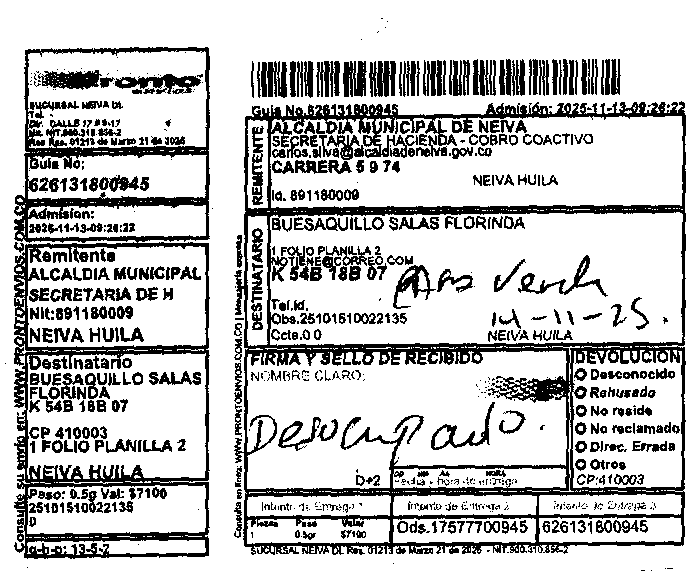 pronto
envios
SUCURSAL NEIVA DL
Tel.
Dir. CALLE 17 # 5-17
Nit. NIT.900.310.856-2
Res Res. 01213 de Marzo 21 de 2025
Guia No:
626131800945
Admision:
2025-11-13-09:26:22
Remitente
ALCALDIA MUNICIPAL
SECRETARIA DE H
Nit:891180009
NEIVA HUILA
Destinatario
BUESAQUILLO SALAS
FLORINDA
K 54B 18B 07
CP 410003
1 FOLIO PLANILLA 2
NEIVA HUILA
Peso: 0.5g Val: $7100
25101510022135
D
g-h-p: 13-5-2
Consulte su envio en: WWW.PRONTOENVIOS.COM.CO
Guia No.626131800945 Admisión: 2025-11-13-09:26:22
REMITENTE
ALCALDIA MUNICIPAL DE NEIVA
SECRETARIA DE HACIENDA - COBRO COACTIVO
carlos.silva@alcaldiadeneiva.gov.co
CARRERA 5 9 74
NEIVA HUILA
Id. 891180009
DESTINATARIO
BUESAQUILLO SALAS FLORINDA
1 FOLIO PLANILLA 2
NOTIENE@CORREO.COM
K 54B 18B 07
Tel.id.
Obs.25101510022135
14-11-25.
Ccte.0 0
NEIVA HUILA
FIRMA Y SELLO DE RECIBIDO
NOMBRE CLARO:
Desocupado.
D+2
DD MM AA HORA
Fecha y hora de entrega
DEVOLUCION
Desconocido
Rehusado
No reside
No reclamado
Direc. Errada
Otros
CP:410003
Intento de Entrega 1 Intento de Entrega 2 Intento de Entrega 3
Piezas Peso Valor
1 0.5gr $7100
Ods.17577700945 626131800945
SUCURSAL NEIVA DL Res. 01213 de Marzo 21 de 2025 - NIT.900.310.856-2